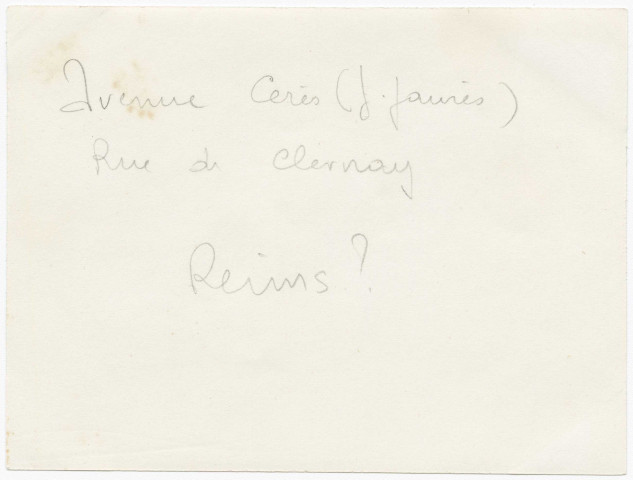 Avenue Cérès (J. Jaurès)
Rue de Clernay
Reims ?